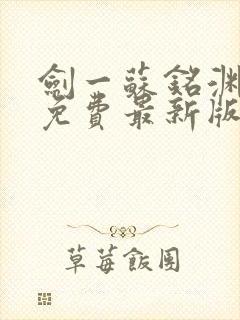 劍一蘇銘淵
免費最新版
草莓飯團